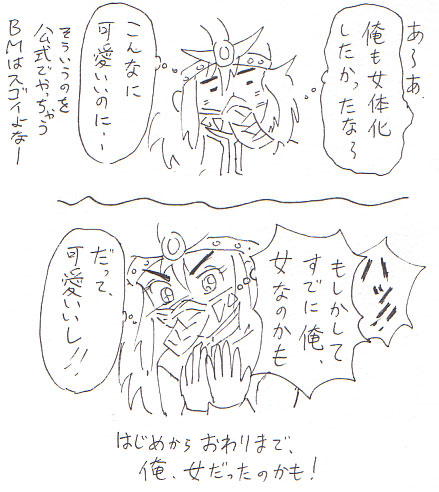 あ〜あ、
俺も女体化
したかったな〜
こんなに
可愛いいのに・・
そういうのを
公式でやっちゃう
BMはスゴイよなー
ハッ!!
もしかして
すでに俺、
女なのかも
だって、
可愛いいし!!
はじめから おわりまで、
俺、女だったのかも!